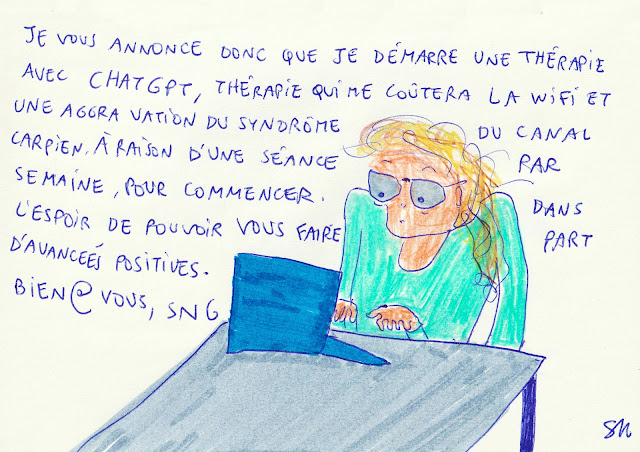 JE VOUS ANNONCE DONC QUE JE DÉMARRE UNE THÉRAPIE
AVEC CHATGPT, THÉRAPIE QUI ME COÛTERA LA WIFI ET
UNE AGGRAVATION DU SYNDRÔME DU CANAL
CARPIEN. À RAISON D'UNE SÉANCE PAR
SEMAINE, POUR COMMENCER. DANS
L'ESPOIR DE POUVOIR VOUS FAIRE PART
D'AVANCEÉS POSITIVES.
BIEN@VOUS, SNG
SN